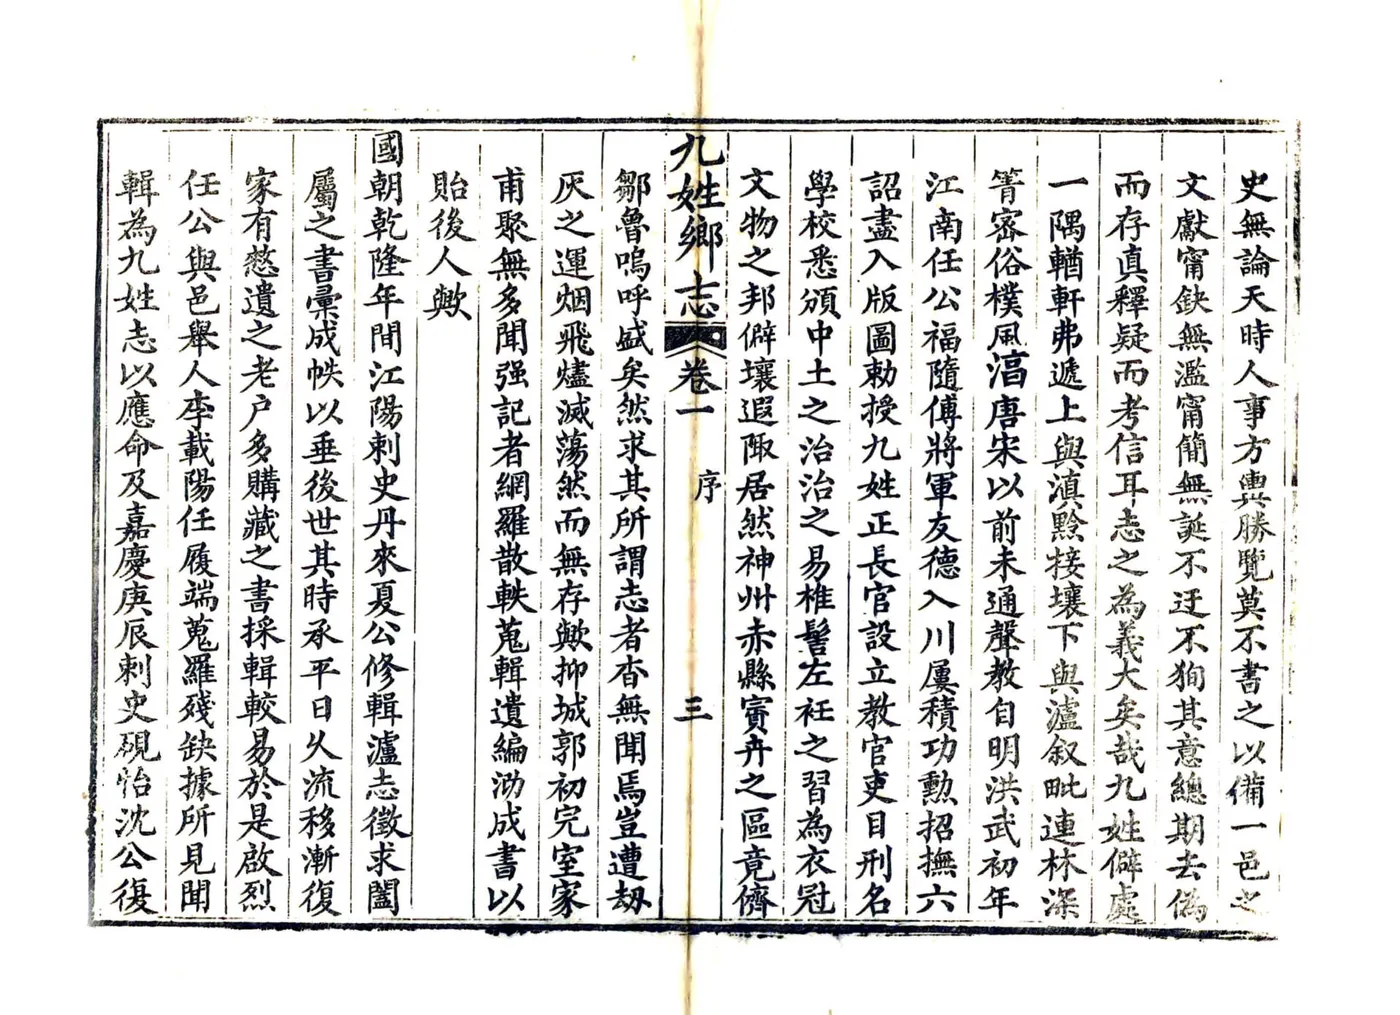 史無論天時人事方輿勝覽莫不書之以備一邑之
文獻甯缺無濫甯簡無誕不迂不狥其意總期去偽
而存真釋疑而考信耳志之為義大矣哉九姓僻處
一隅輶軒弗遞上與滇黔接壤下與瀘叙毗連林深
箐密俗樸風滀唐宋以前未通聲教自明洪武初年
江南任公福隨傅將軍友德入川屢積功勲招撫六
詔盡入版圖勅授九姓正長官設立教官吏目刑名
學校悉頒中土之治治之易椎髻左衽之習為衣冠
文物之邦僻壤遐陬居然神州赤縣賓卉之區竟儕
九姓鄉志 卷一 序 三
鄒魯嗚呼盛矣然求其所謂志者杳無聞焉豈遭刼
灰之運烟飛燼滅蕩然而無存歟抑城郭初完室家
甫聚無多聞强記者網羅散軼蒐輯遺編泐成書以
貽後人歟
國朝乾隆年間江陽刺史丹來夏公修輯瀘志徵求闔
屬之書彙成帙以垂後世其時承平日久流移漸復
家有憗遺之老户多購藏之書採輯較易於是啟烈
任公與邑舉人李載陽任履端蒐羅殘缺據所見聞
輯為九姓志以應命及嘉慶庚辰刺史硯怡沈公復